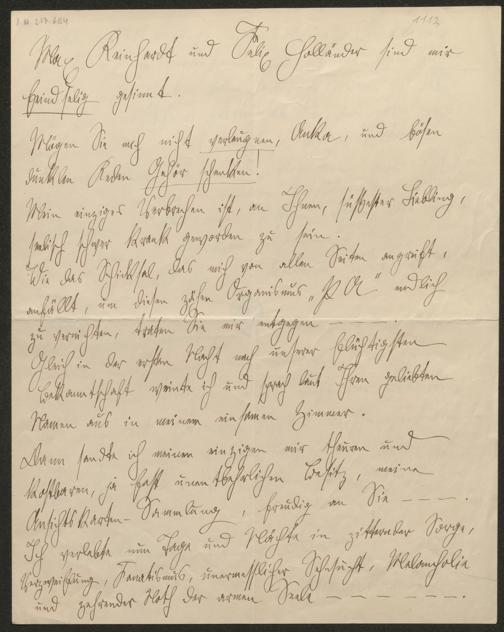 I.N. 217.684
1112
Max Reinhardt und Felix Holländer sind mir
feindselig gesinnt.
Mögen Sie mich nicht verleugnen, Anka, und bösen
dunklen Reden Gehör schenken!
Mein einziges Verbrechen ist, an Ihnen, süßester Liebling,
seelisch schwer krank geworden zu sein.
Wie das Schicksal, das mich von allen Seiten angreift,
anfällt, um diesen zähen Organismus „PA“ endlich
zu vernichten, traten Sie mir entgegen — — — .
Gleich in der ersten Nacht nach unserer flüchtigsten
Bekanntschaft weinte ich und sprach laut Ihren geliebten
Namen aus in meinem einsamen Zimmer.
Dann sandte ich meinen einzigen mir theuren und
kostbaren, ja fast unentbehrlichen Besitz, meine
Ansichtskarten-Sammlung, freudig an Sie — — — .
Ich verlebte nun Tage und Nächte in zitternder Sorge,
Verzweiflung, Fanatismus, unermesslicher Sehnsucht, Melancholie
und zehrender Noth der armen Seele — — — — — .